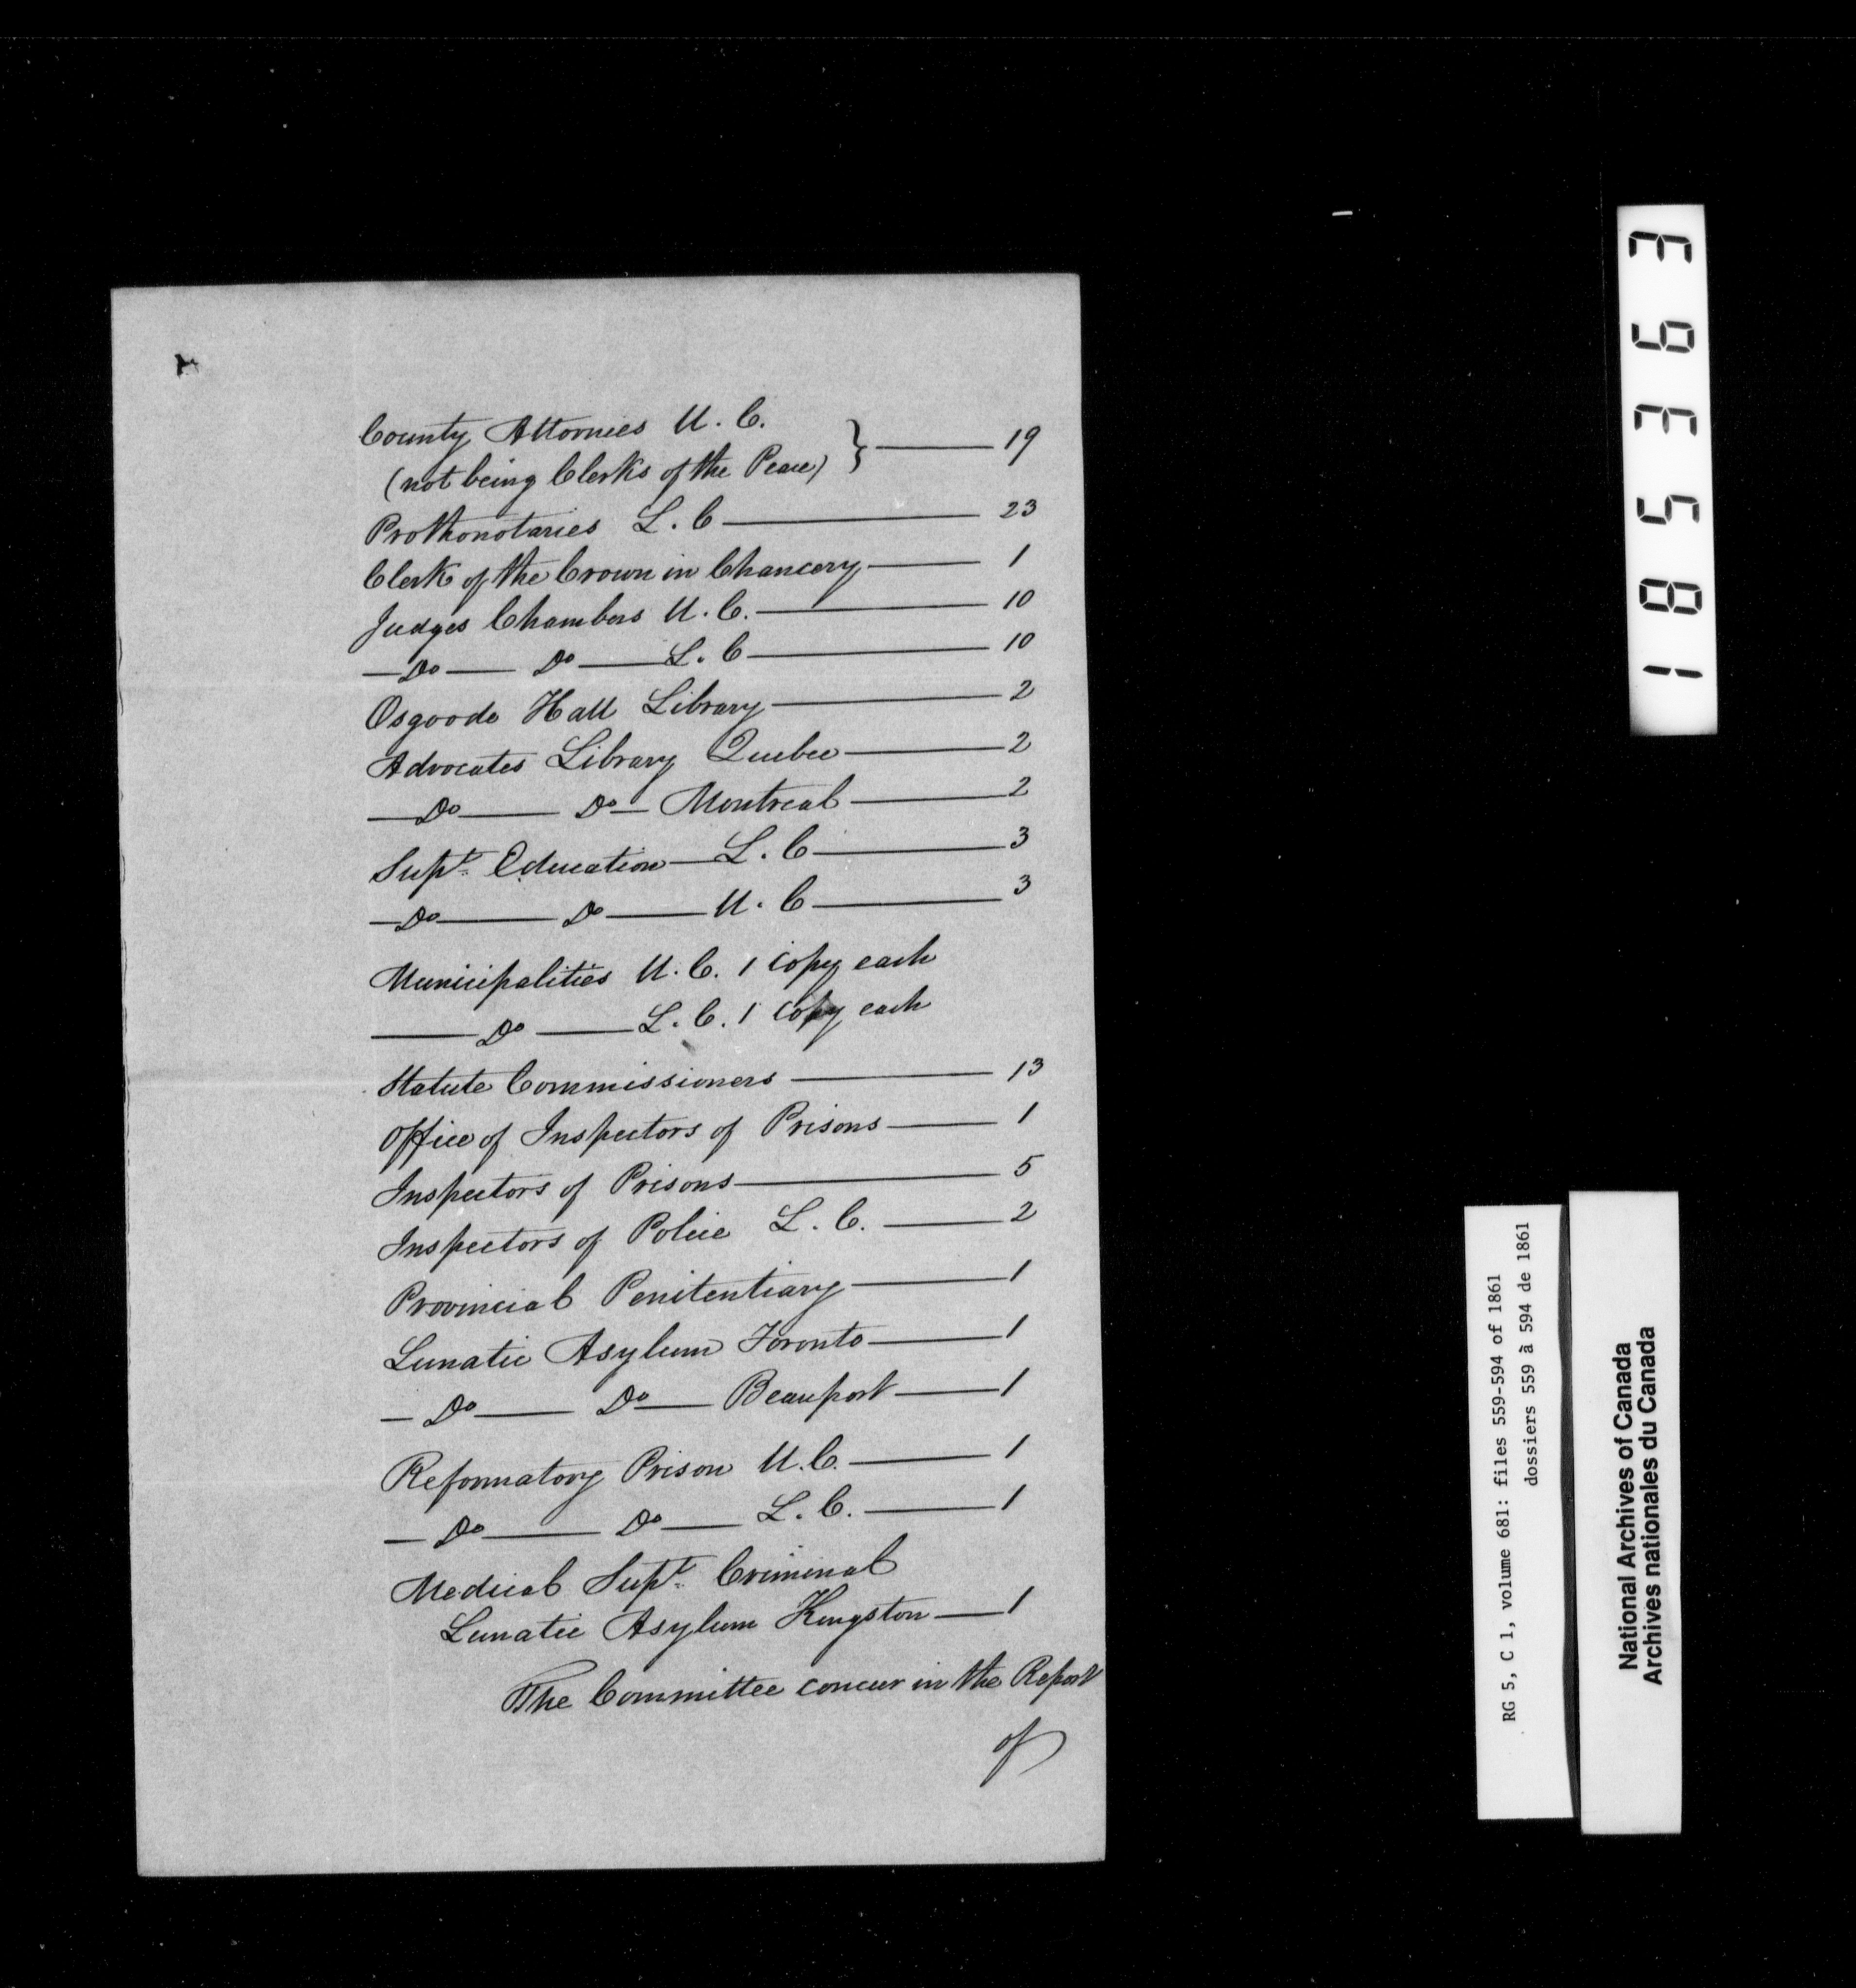 County Attornies U. C.
(not being Clerks of the Peace) } — 19
Prothonotaries L. C — 23
Clerk of the Crown in Chancery — 1
Judges Chambers U. C. — 10
— Do — Do — L. C — 10
Osgoode Hall Library — 2
Advocates Library Quebec — 2
— Do — Do — Montreal — 2
Supt. Education — L. C — 3
— Do — Do — U. C — 3
Municipalities U. C. 1 copy each
— Do — L. C. 1 copy each
Statute Commissioners — 13
Office of Inspectors of Prisons — 1
Inspectors of Prisons — 5
Inspectors of Police L. C. — 2
Provincial Penitentiary — 1
Lunatic Asylum Toronto — 1
— Do — Do — Beauport — 1
Reformatory Prison U. C. — 1
— Do — Do — L. C. — 1
Medical Supt. Criminal
Lunatic Asylum Kingston — 1
The Committee concur in the Report
of
185363
RG 5, C 1, volume 681: files 559-594 of 1861
dossiers 559 à 594 de 1861
National Archives of Canada
Archives nationales du Canada